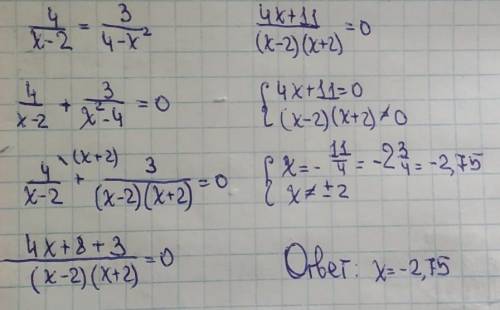 4/(x-2) = 3/(4-x²)
4/(x-2) + 3/(x²-4) = 0
4/(x-2) \(x+2) + 3/((x-2)(x+2)) = 0
(4x+8+3)/((x-2)(x+2)) = 0
(4x+11)/((x-2)(x+2)) = 0
{ 4x+11=0
(x-2)(x+2)≠0
{ x=-11/4 = -2 3/4 = -2,75
x≠±2
Ответ: x=-2,75